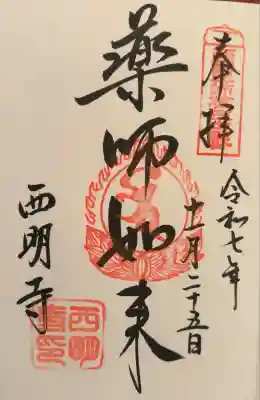 奉拝
令和七年
十一月二十五日
薬師如来
西明寺